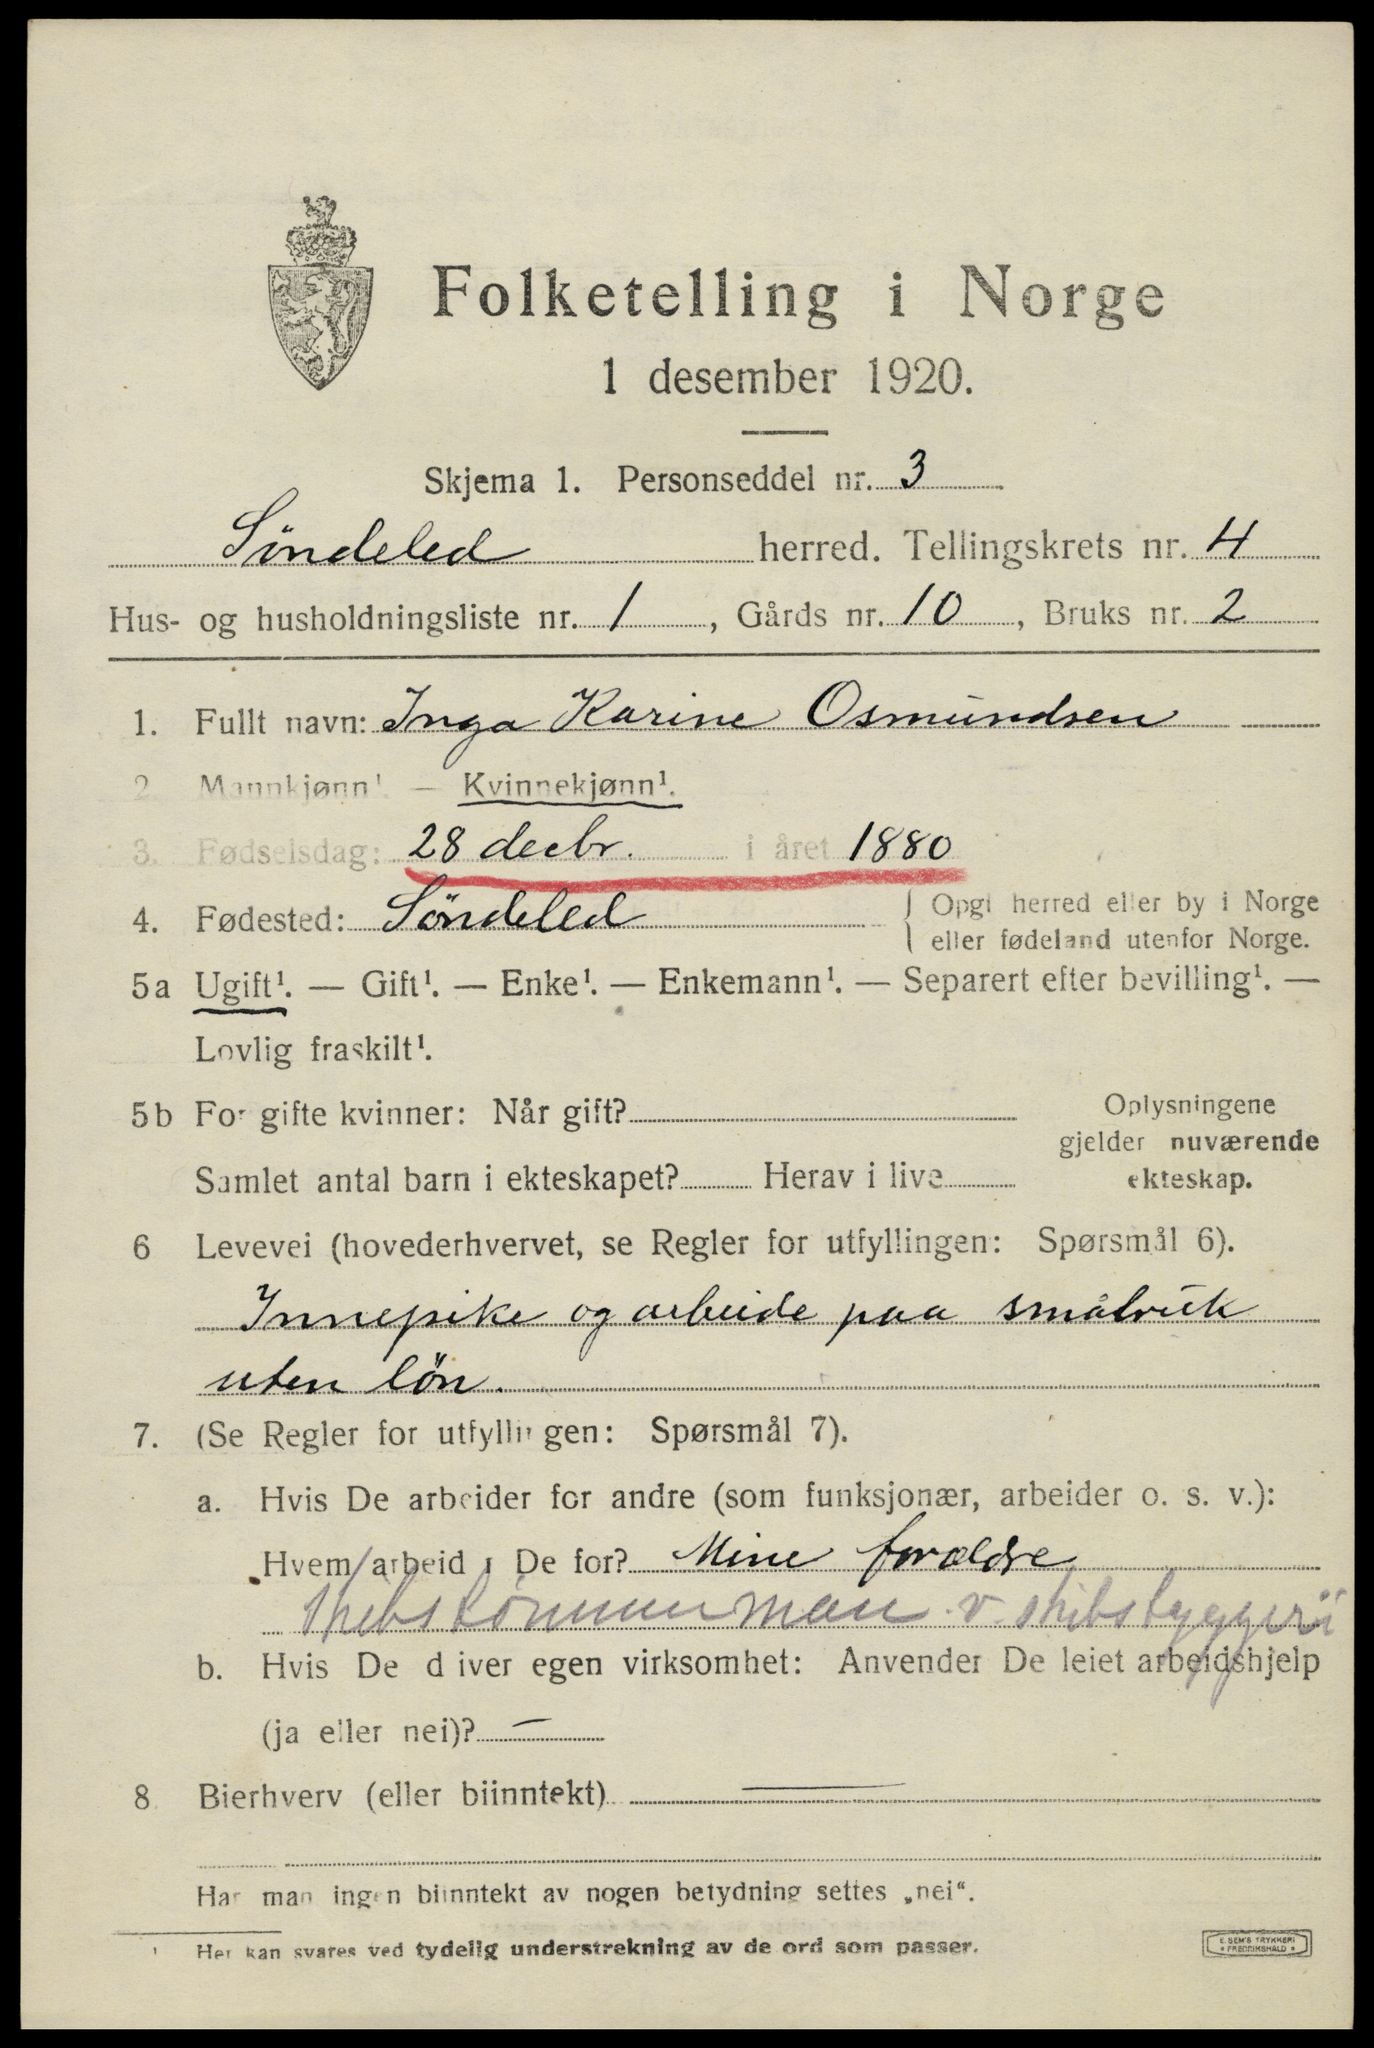 Folketelling i Norge
1 desember 1920.
Skjema 1. Personseddel nr. 3
Søndeled herred. Tellingskrets nr. 4
Hus- og husholdningsliste nr. 1, Gårds nr. 10, Bruks nr. 2
1. Fullt navn: Inga Karine Osmundsen
2. Mannkjønn¹. — Kvinnekjønn¹.
3. Fødselsdag: 28 decbr. i året 1880
4. Fødested: Søndeled { Opgi herred eller by i Norge
eller fødeland utenfor Norge.
5a Ugift¹. — Gift¹. — Enke¹. — Enkemann¹. — Separert efter bevilling¹. —
Lovlig fraskilt¹.
5b For gifte kvinner: Når gift? Oplysningene
gjelder nuværende
Samlet antal barn i ekteskapet? Herav i live ekteskap.
6 Levevei (hovederhvervet, se Regler for utfyllingen: Spørsmål 6).
Innepike og arbeide paa småbruk
uten løn.
7. (Se Regler for utfyllingen: Spørsmål 7).
a. Hvis De arbeider for andre (som funksjonær, arbeider o. s. v.):
Hvem arbeider De for? Mine forældre
Skibstømmerman v. skibsbyggeri
b. Hvis De driver egen virksomhet: Anvender De leiet arbeidshjelp
(ja eller nei)? —
8. Bierhverv (eller biinntekt) —
Har man ingen biinntekt av nogen betydning settes „nei“.
¹ Her kan svares ved tydelig understrekning av de ord som passer.
E. SEM'S TRYKKERI
* FREDRIKSHALD *